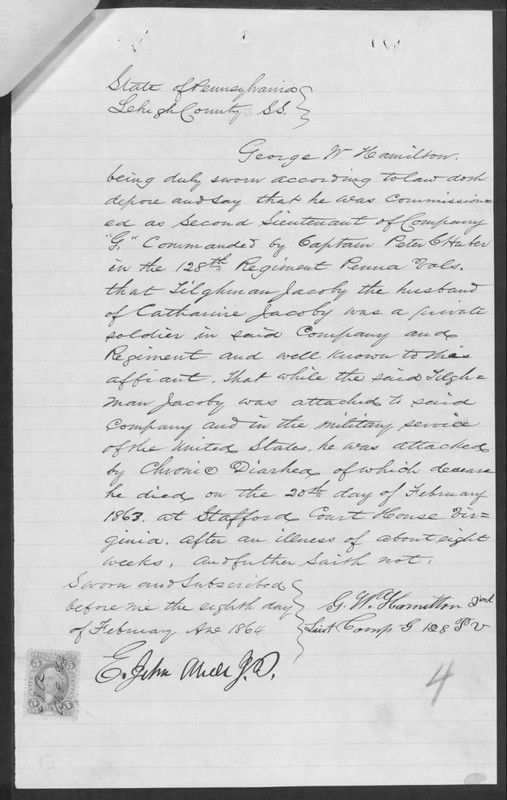 State of Pennsylvania
Lehigh County SS.
George W Hamilton.
being duly sworn according to law doth
depose and say that he was Commission=
ed as Second Lieutenant of Company
"G." Commanded by Captain Peter C Huber
in the 128th Regiment Penna Vols.
that Tilghman Jacoby the husband
of Catharine Jacoby was a private
soldier in said Company and
Regiment and well known to this
affiant. That while the said Tilgh=
man Jacoby was attached to said
Company and in the military service
of the United States. he was attacked
by Chronic Diarhea of which desease
he died on the 20th day of February
1863. at Stafford Court House Vir=
ginia. after an illness of about eight
weeks. And futher saith not.
Sworn and Subscribed
before me the eighth day
of February 1864
G. W. Hamilton 2nd
Lieut Comp. G 128 P V
E. John J.P.
5 5
4